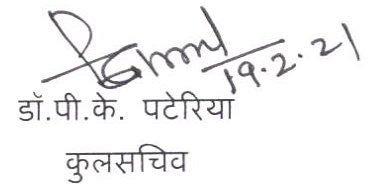 19.2.21
डॉ.पी.के. पटेरिया
कुलसचिव